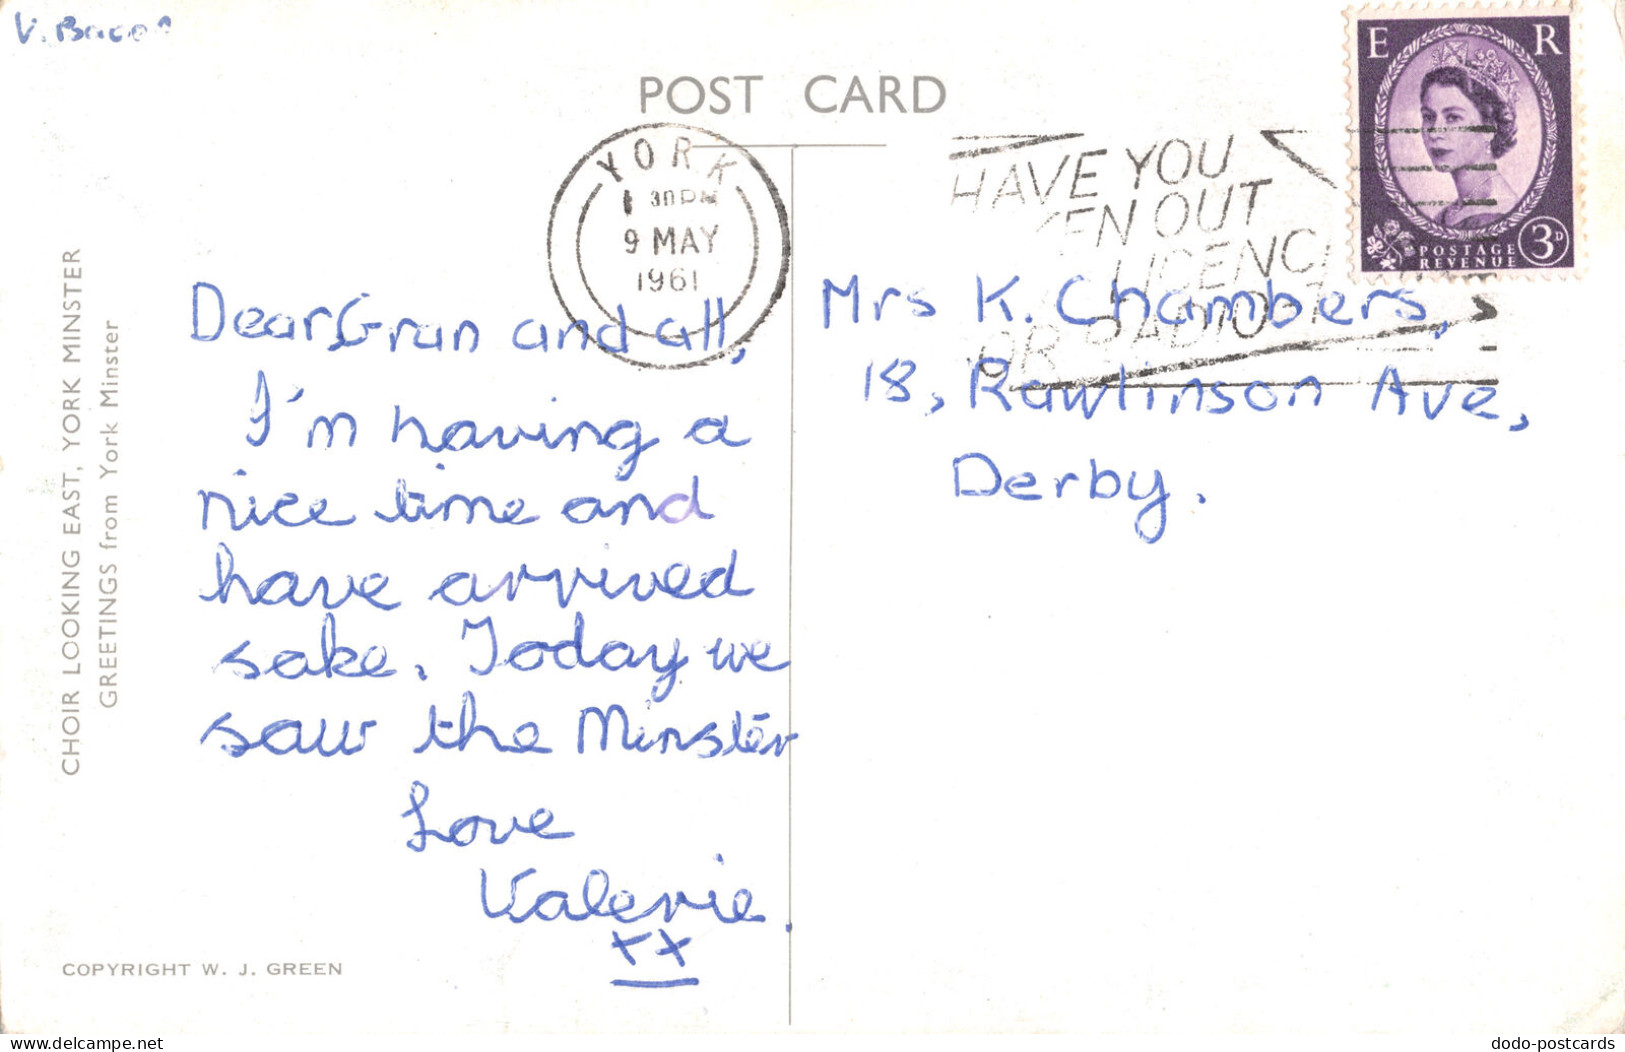 POST CARD
E R
POSTAGE
REVENUE
3D
YORK
30 PM
9 MAY
1961
HAVE YOU
EN OUT
LICENC
OR RADIO
CHOIR LOOKING EAST, YORK MINSTER
GREETINGS from York Minster
Dear Gran and all,
I'm having a
nice time and
have arrived
sake. Today we
saw the Minster
Love
Valerie.
xx
Mrs K. Chambers,
18, Rawlinson Ave,
Derby.
COPYRIGHT W. J. GREEN
www.delcampe.net
dodo-postcards